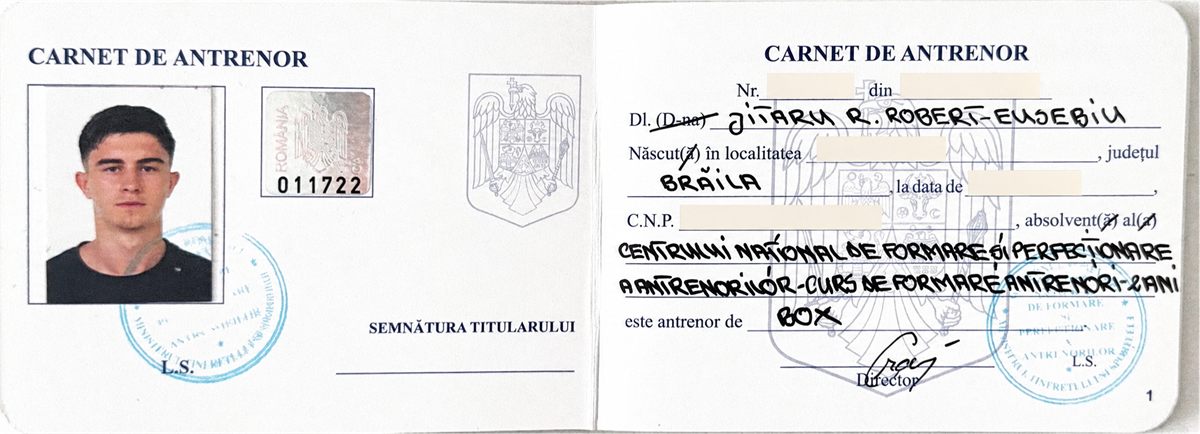 CARNET DE ANTRENOR
ROMANIA
011722
SEMNĂTURA TITULARULUI
L.S.
CARNET DE ANTRENOR
Nr. din
Dl. (D-na) JITARU R. ROBERT-EUSEBIU
Născut(ă) în localitatea , județul
BRĂILA , la data de ,
C.N.P. , absolvent(ă) al(a)
CENTRULUI NAȚIONAL DE FORMARE ȘI PERFECȚIONARE
A ANTRENORILOR-CURS DE FORMARE ANTRENORI-2 ANI
este antrenor de BOX
DE FORMARE
ȘI
PERFECȚIONARE
A
ANTRENORILOR
MINISTERUL TINERETULUI ȘI SPORTULUI
Director
L.S.
1